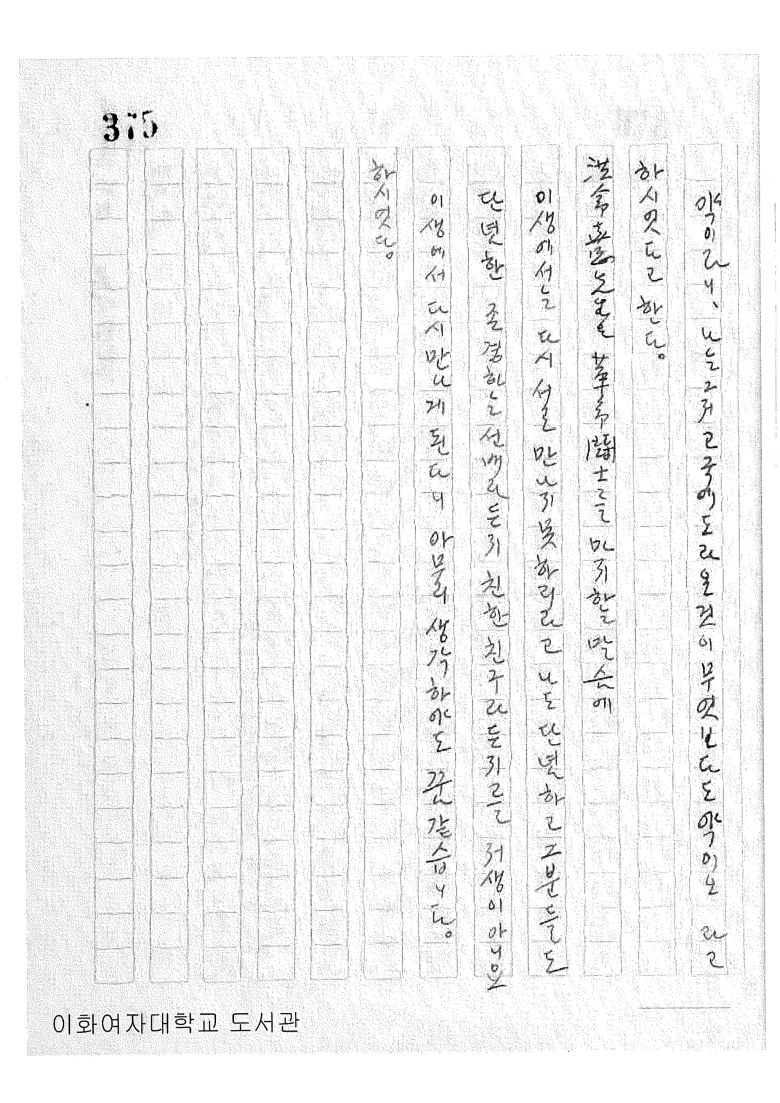 375
약이라니、나는그저고국에도라올것이무엇보다도약이오 라고
하시엿다고 한다。
先生을 華府 士를 마지할 말슴에
이생에서는 다시 서로 만나지못하리라고 나도단념하고그분들도
단념한 존경하는선배라든지 친한친구라든지를 저생이아니요
이생에서 다시만나게된다니 아무리 생각하야도 꿈같습니다。
하시엿다。
이화여자대학교 도서관